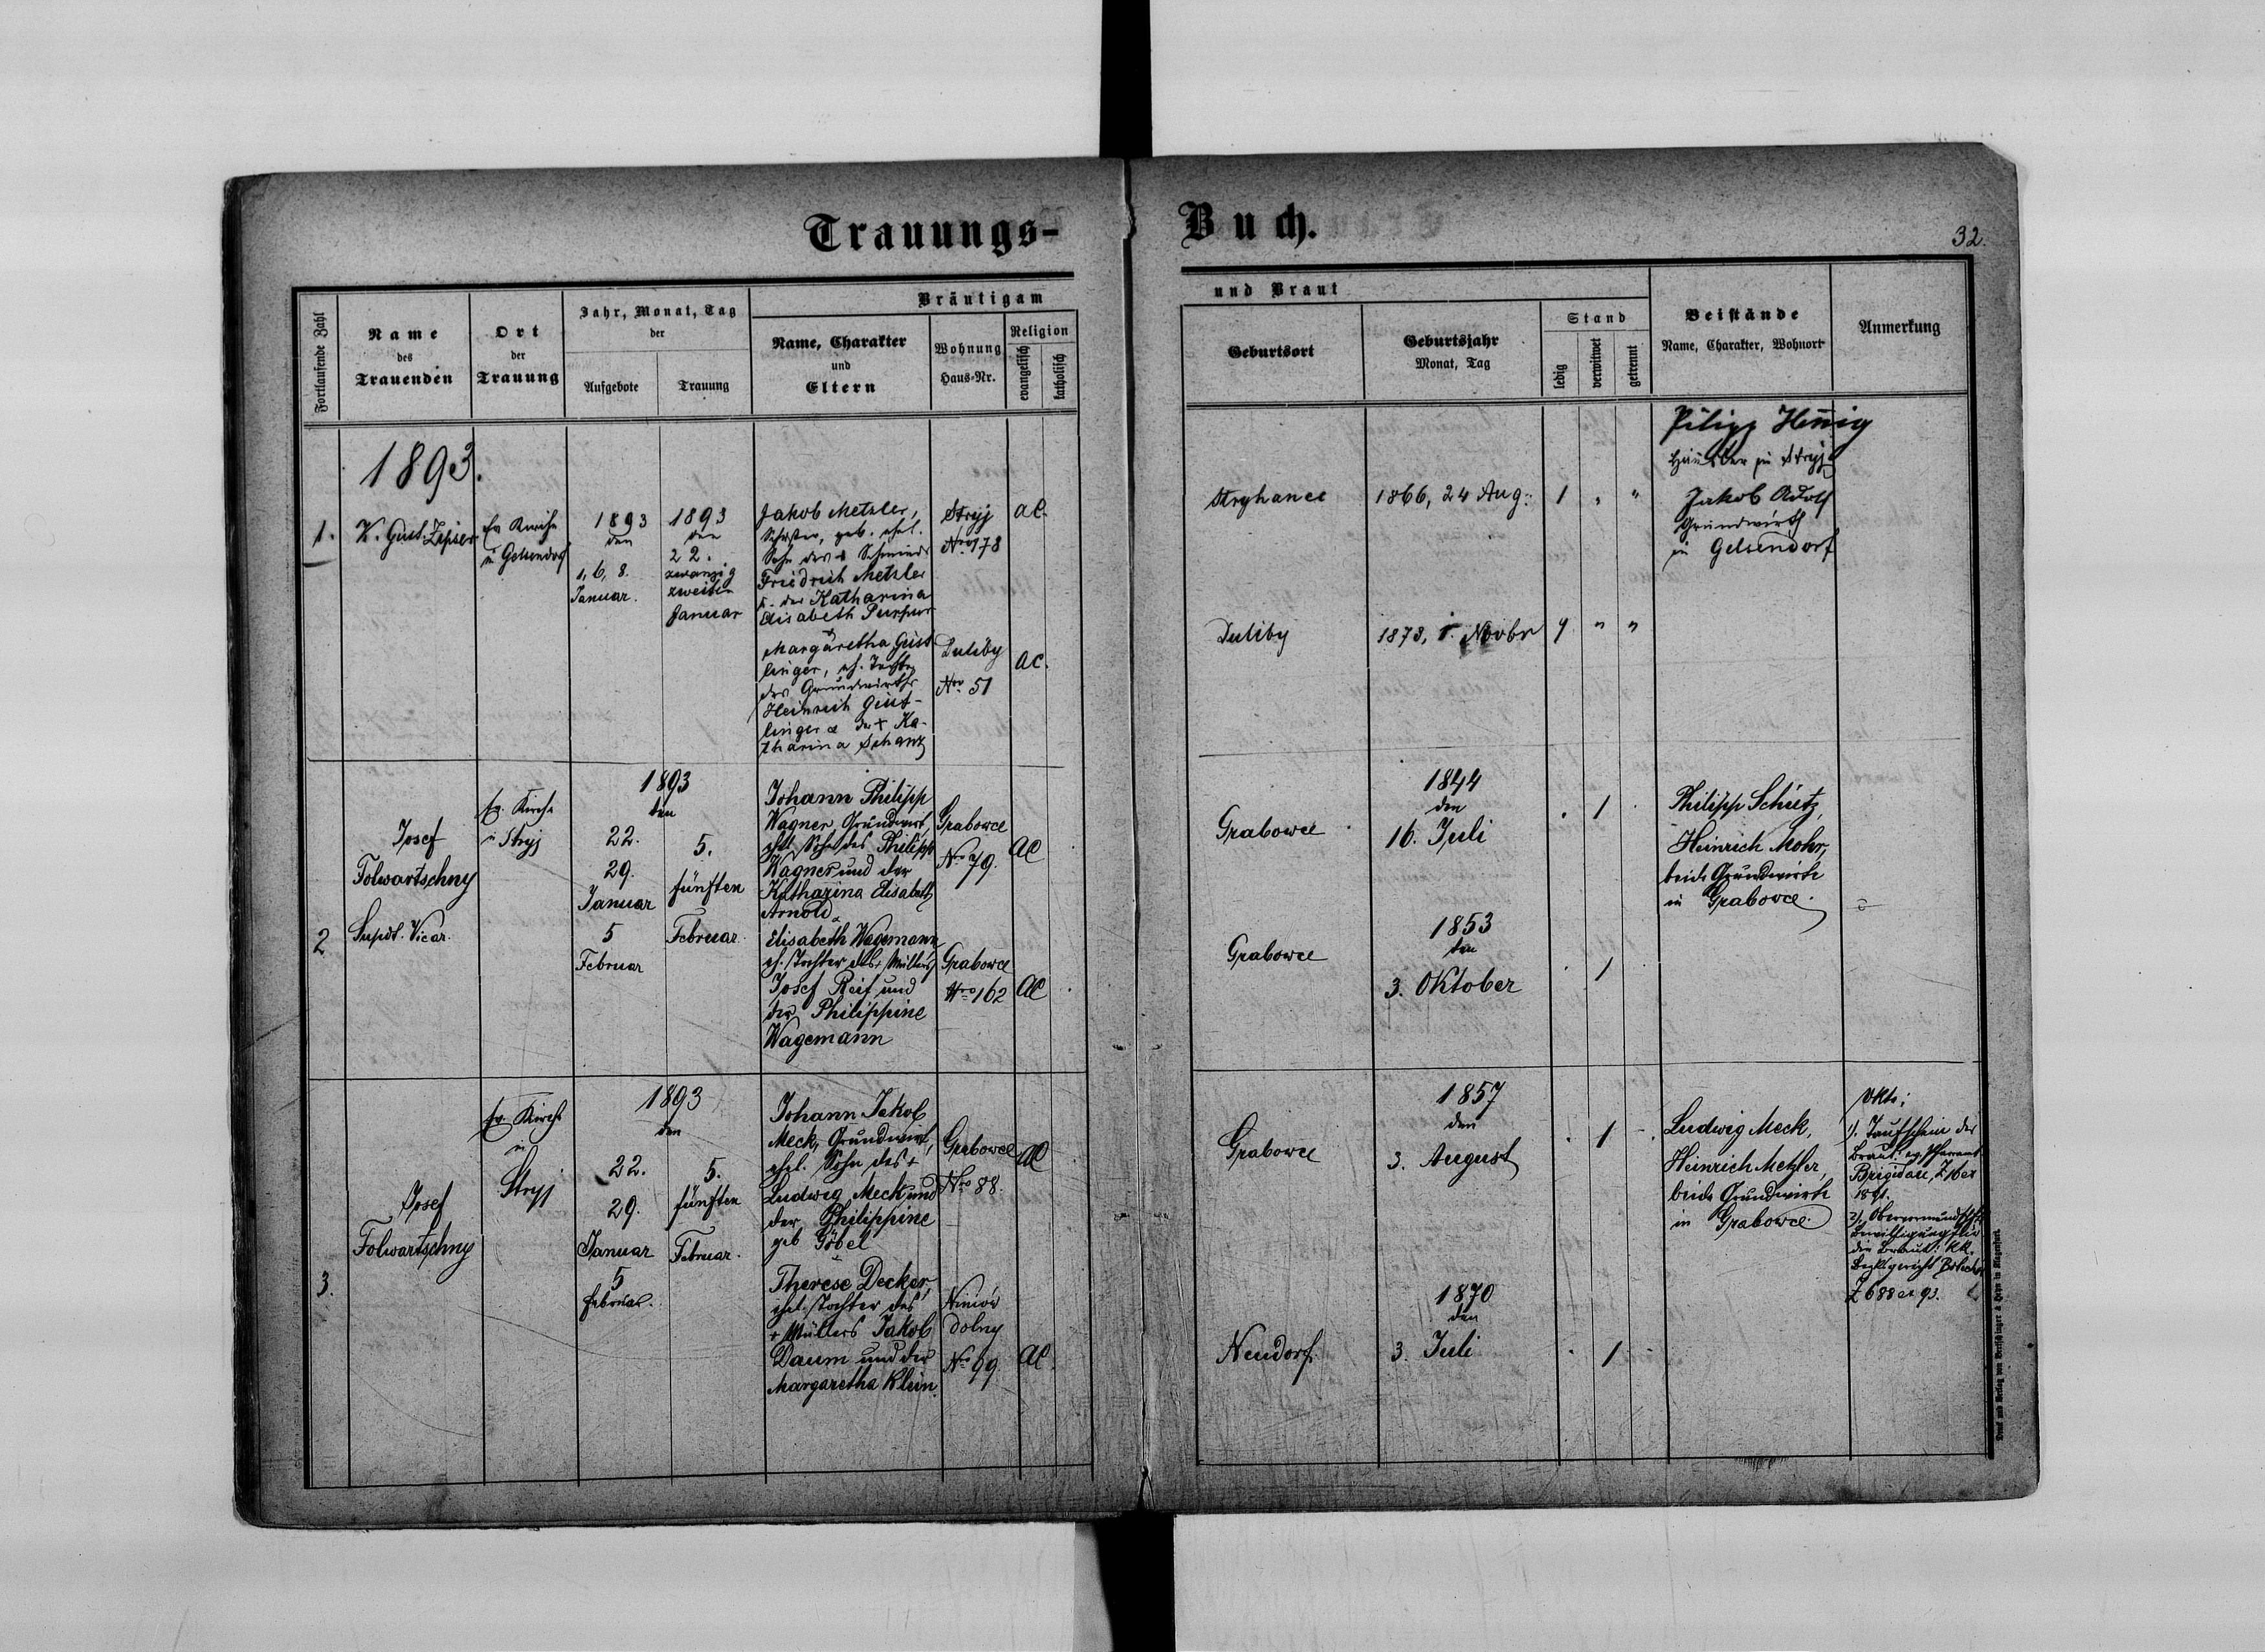 Trauungs-
Buch.
32.
Fortlaufende Zahl
Name
des
Trauenden
Ort
der
Trauung
Jahr, Monat, Tag
der
Aufgebote
Trauung
Bräutigam
Name, Charakter
und
Eltern
Wohnung
Haus-Nr.
Religion
evangelisch
katholisch
und Braut
Geburtsort
Geburtsjahr
Monat, Tag
Stand
ledig
verwitwet
getrennt
Beistände
Name, Charakter, Wohnort
Anmerkung
1893.
1.
K. Gust. Zipser
Ev. Kirche
in Gelsendorf
1893
den
1, 6, 8.
Januar.
1893
den
22.
zwanzig
zweiten
Januar
Jakob Metzler,
geb. ehel.
Sohn des + Schmieds
Friedrich Metzler
u. der Katharina
Elisabeth Purpur
Margaretha Geist-
linger, eh. Tochter
des Grundwirths
Heinrich Geist-
linger & der + Ka-
tharina Schanz
Stryj
Nro 178
AC.
Duliby
Nro 51
AC.
Stryhance
1866, 24 Aug.
1 " "
Duliby
1873, Novbr
1 " "
Pilipp Hennig
Häusler in Stryj
Jakob Adolf
Grundwirth
in Gelsendorf
2
Josef
Folwartschny
Supdt. Vicar.
Ev. Kirche
in Stryj
1893
den
22.
29.
Januar
5
Februar
5.
fünften
Februar.
Johann Philipp
Wagner Grundwirt,
ehel. Sohn des Philipp
Wagner und der
Katharina Elisabeth
Arnold
&
Elisabeth Wagemann
eh. Tochter des + Müllers
Josef Reif und
der Philippine
Wagemann
Grabowce
Nro 79.
AC
Grabowce
Nro 162
AC
Grabowce
1844
den
16. Juli
. 1 .
Grabowce
1853
den
3. Oktober
. 1
Philipp Schütz,
Heinrich Mohr,
beide Grundwirte
in Grabowce.
3.
Josef
Folwartschny
Ev. Kirche
in
Stryj
1893
den
22.
29.
Januar
5
Februar.
5.
fünften
Februar.
Johann Jakob
Meck, Grundwirt,
ehel. Sohn des +
Ludwig Meck und
der Philippine
geb Göbel
&
Therese Decker,
ehel. Tochter des
+ Müllers Jakob
Daum und der
Margaretha Klein.
Grabowce
Nro 88.
AC
Niniów
dolny
No 69
AC.
Grabowce
1857
den
3. August
. 1 -
Neudorf
1870
den
3. Juli
. 1 -
Ludwig Meck,
Heinrich Metzler,
beide Grundwirte
in Grabowce.
1). Taufschein der
Braut: ev. Pfarramt
Brigidau, Z 16 ex
1891.
2). Obervormundsch.
Bewilligung für
die Braut: KK.
Bezksgericht Bolechów
Z 688 ex 93.
Druck und Verlag von Bertschinger & Heyn in Klagenfurt.